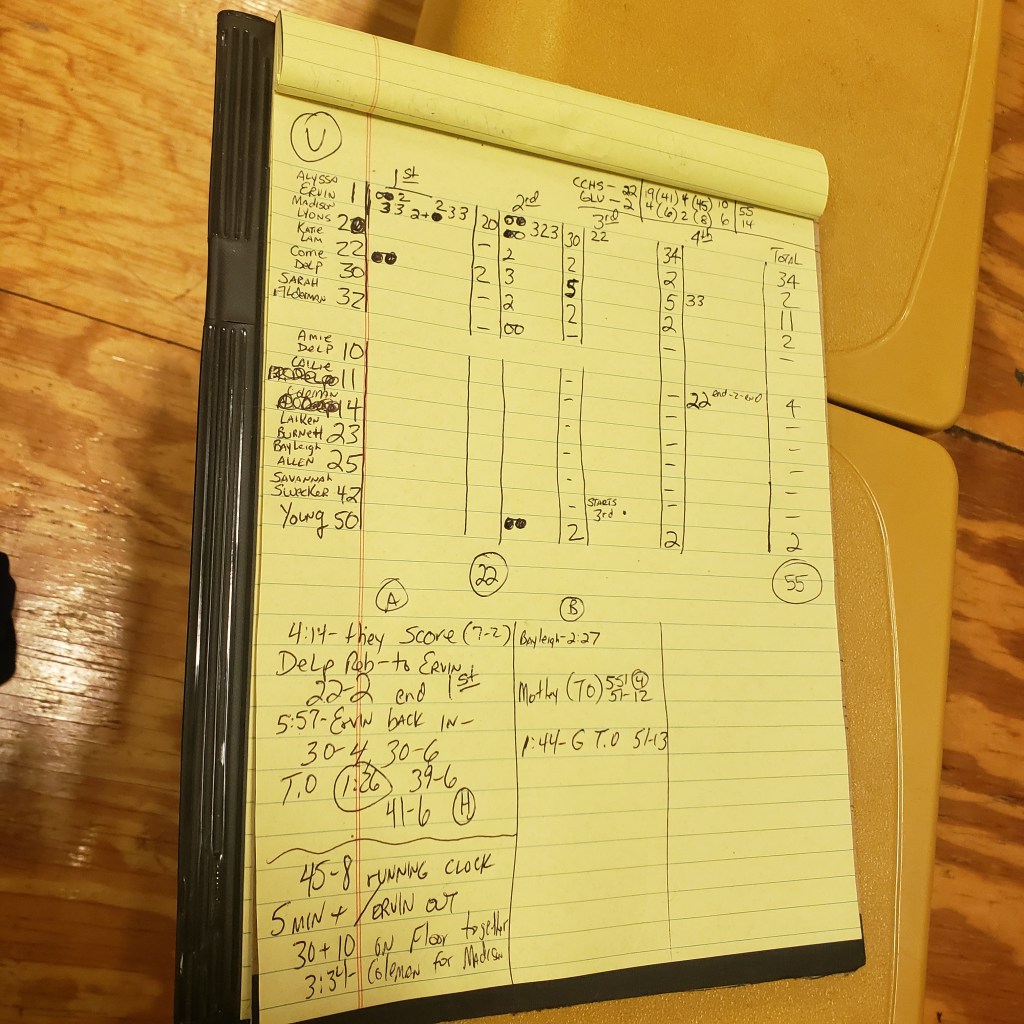 V
1st
2nd
3rd
4th
TOTAL
CCHS - 22 | 19 (41) 4 (45) 10 | 55
GLV - 2 | 4 (6) 2 (8) 6 | 14
ALYSSA
ERVIN 1 2 33 2+ 233 20 323 30 22 34 34
Madison
LYONS 20 - 2 2 2 2
Katie
LAM 22 2 3 5 5 33 11
Corrie
DELP 30 - 2 2 2 2
SARAH
Alderman 32 - 00 - - -
Amie
DELP 10 - -
CALLIE
11 - - 22 end-2-end 4
Coleman
14 - - -
LAIKEN
BURNETT 23 - - -
Bayleigh
ALLEN 25 - - -
SAVANNAH
Swecker 42 - STARTS 3rd. - -
Young 50 2 2 2
22
55
A
4:14 - they Score (7-2)
DELP Reb - to ERVIN
22-2 end 1st
5:57 - ERVIN back IN -
30-4, 30-6
T.O 1:26 39-6
41-6 H
45-8 rUNNING CLOCK
5 MIN + / ERVIN OUT
30 + 10 ON Floor together
3:34 - Coleman for Madison
B
Bayleigh - 2:27
(TO) 551 4
51-12
1:44 - G T.O 51-13